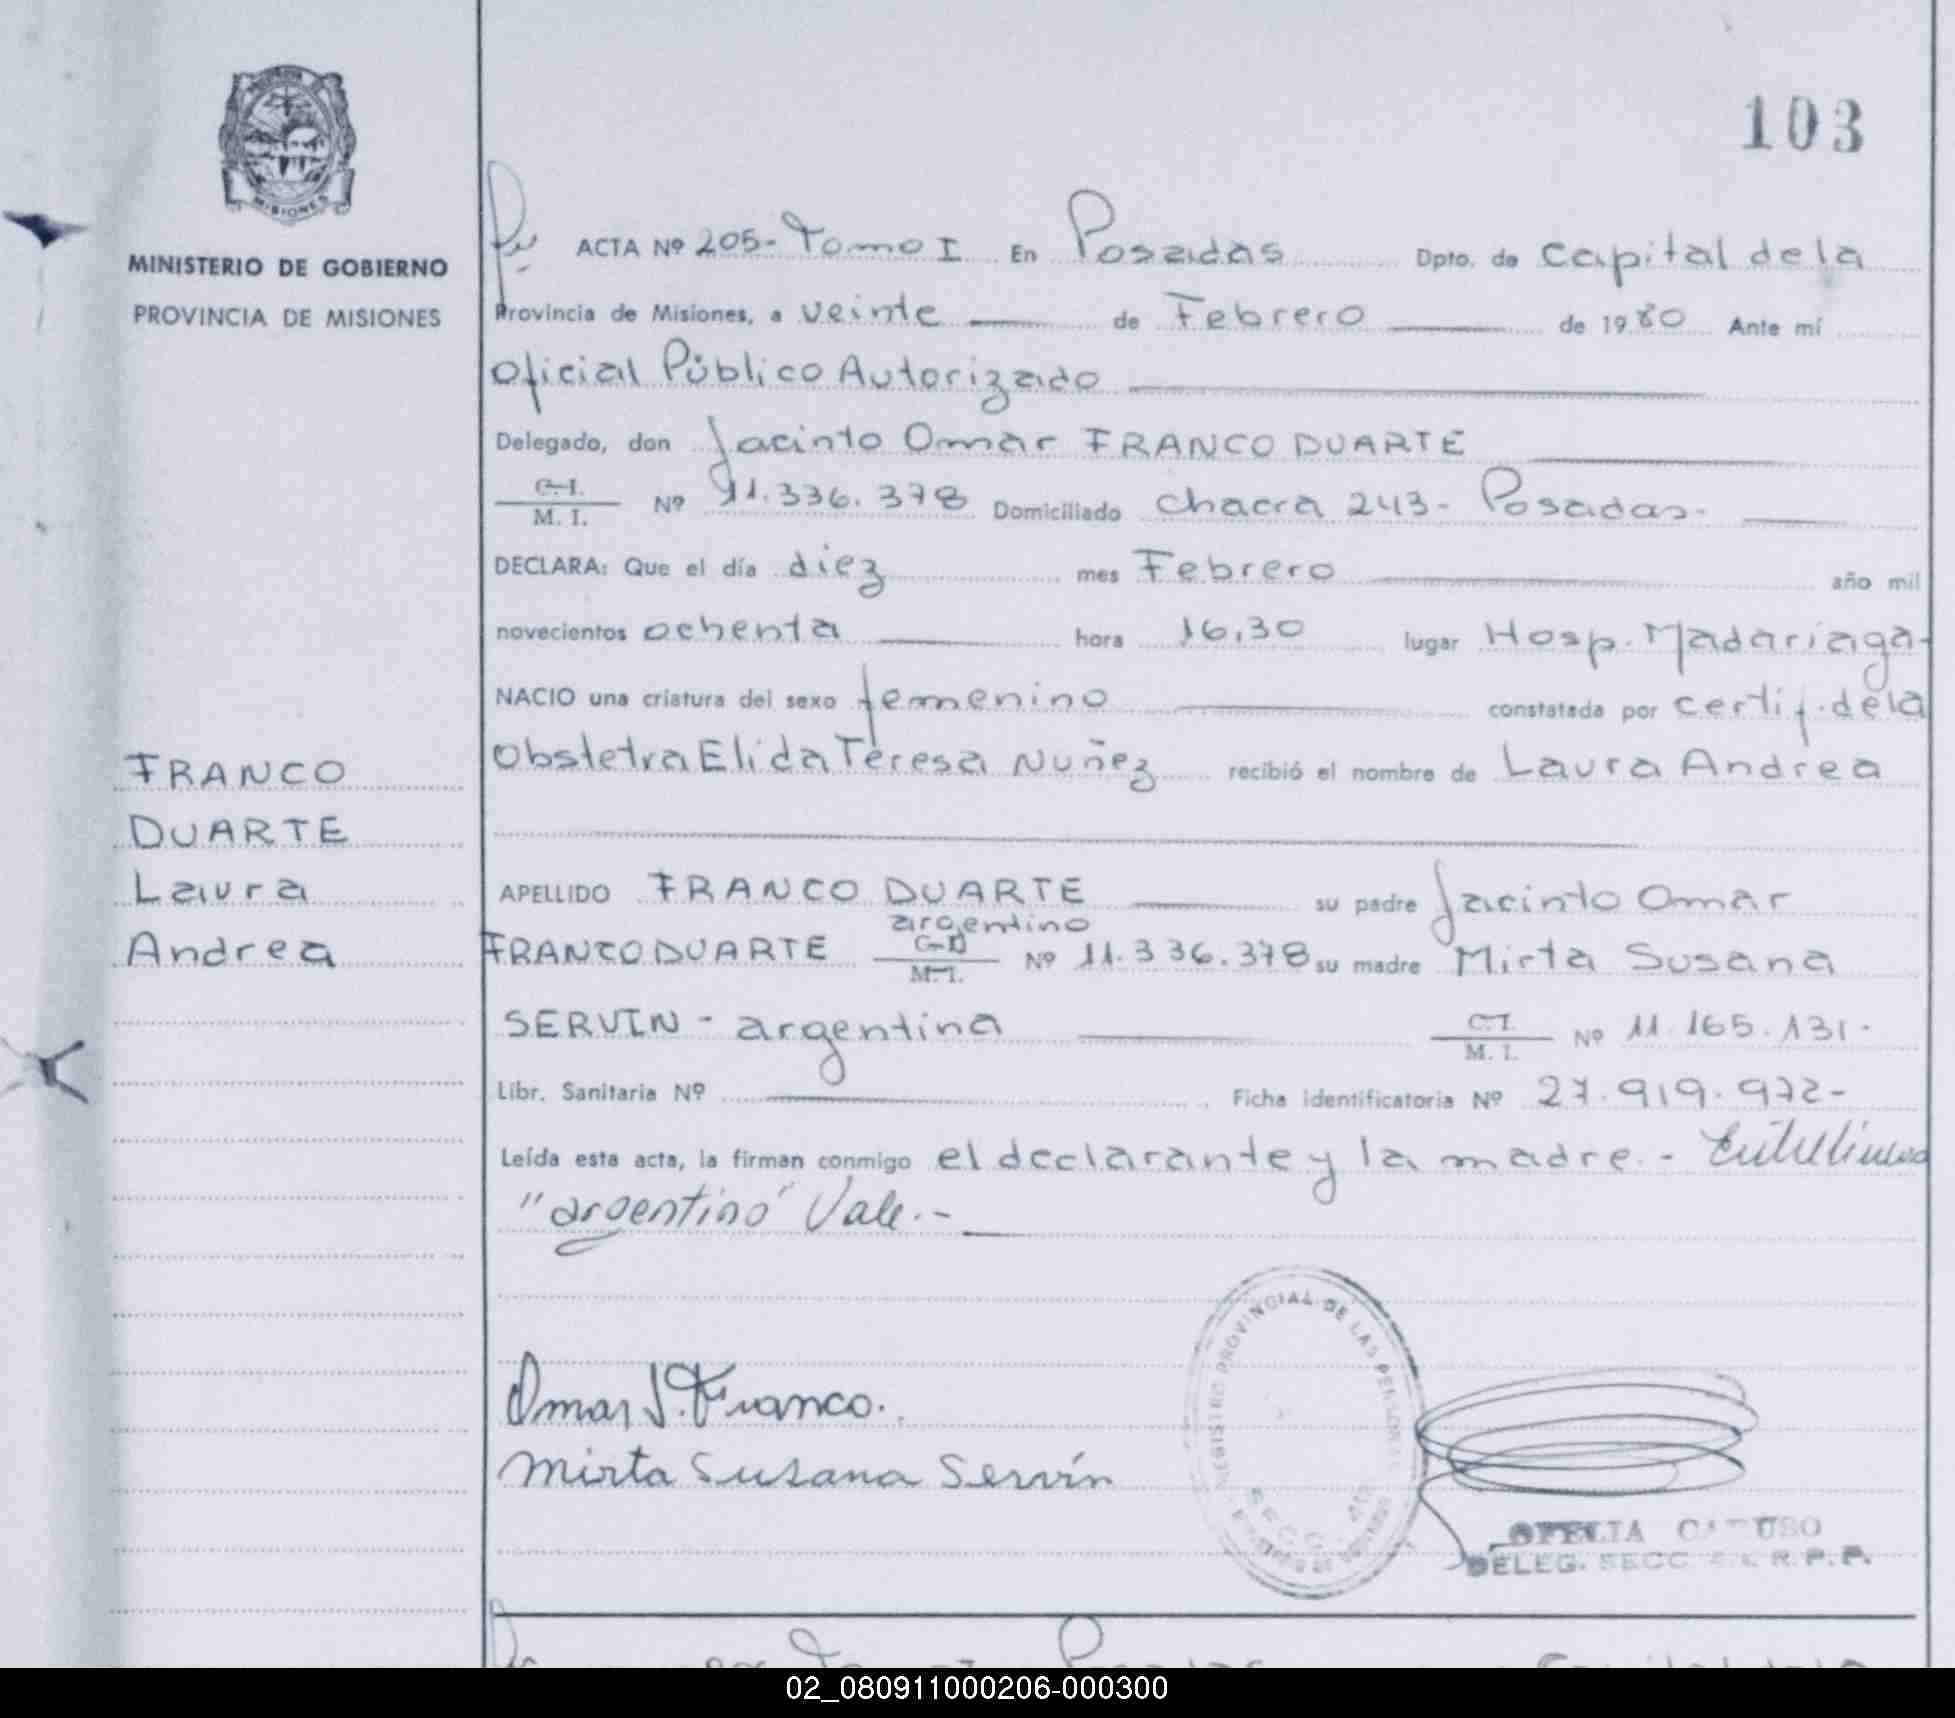 MISIONES
MINISTERIO DE GOBIERNO
PROVINCIA DE MISIONES
FRANCO
DUARTE
Laura
Andrea
103
ACTA Nº 205- Tomo I En Posadas Dpto. de Capital de la
Provincia de Misiones, a veinte de Febrero de 1980 Ante mí
Oficial Público Autorizado
Delegado, don Jacinto Omar FRANCO DUARTE
C. I.
M. I. Nº 11.336.378 Domiciliado Chacra 243- Posadas-
DECLARA: Que el día diez mes Febrero año mil
novecientos ochenta hora 16,30 lugar Hosp. Madariaga-
NACIO una criatura del sexo femenino constatada por certif. de la
Obstetra Elida Teresa Nuñez recibió el nombre de Laura Andrea
APELLIDO FRANCO DUARTE su padre Jacinto Omar
argentino
FRANCO DUARTE C. I. M. I. Nº 11.336.378 su madre Mirta Susana
SERVIN - argentina C. I. M. I. Nº 11.165.131-
Libr. Sanitaria Nº Ficha identificatoria Nº 27.919.972-
Leída esta acta, la firman conmigo el declarante y la madre.-
"argentino" Vale.-
REGISTRO PROVINCIAL DE LAS PERSONAS
SECC.
Omar J. Franco.
Mirta Susana Servín
OFELIA CARUSO
DELEG. SECC R.P.P.
02_080911000206-000300